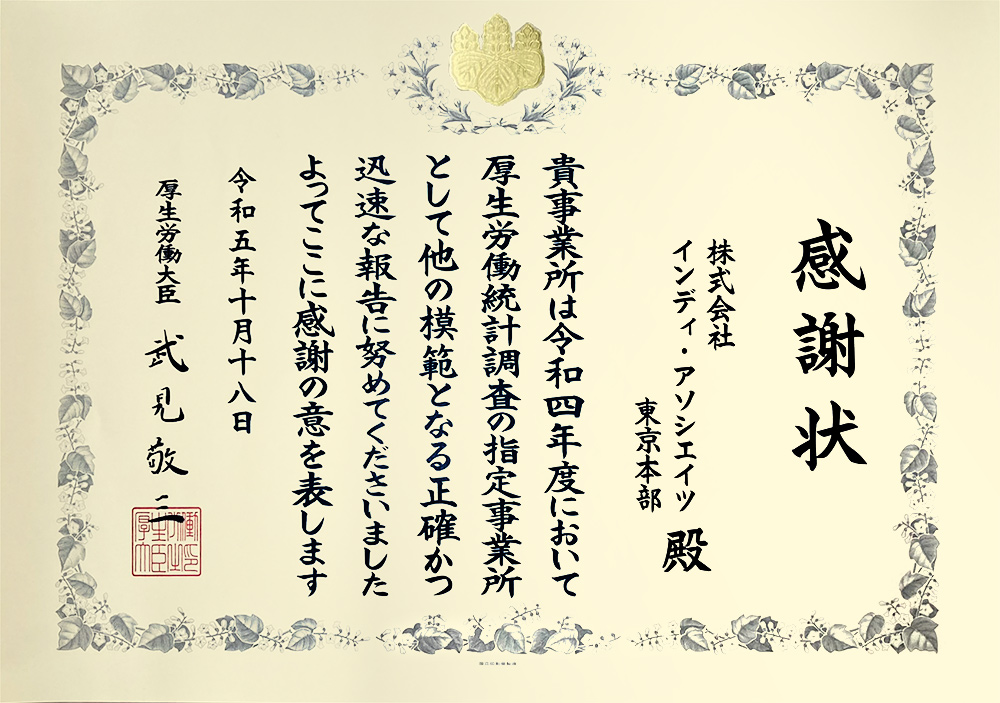 感謝状
株式会社
インディ・アソシエイツ
東京本部
殿
貴事業所は令和四年度において
厚生労働統計調査の指定事業所
として他の模範となる正確かつ
迅速な報告に努めてくださいました
よってここに感謝の意を表します
令和五年十月十八日
厚生労働大臣 武見敬三